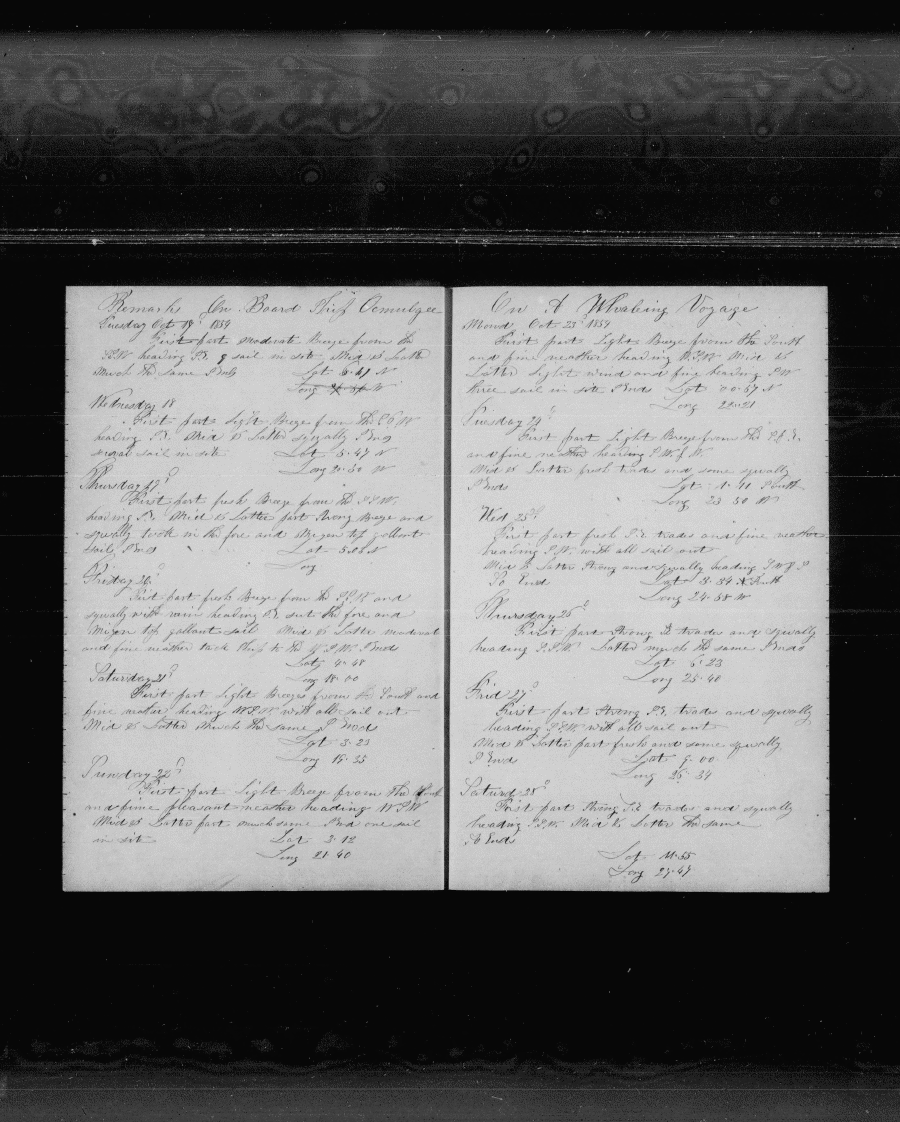 Remarks On Board Ship Ocmulgee
Tuesday Oct 17 1854
First part moderate Breeze from the
heading S.E. sail in site Mid & Latter
Much the same So Ends Lat 6.41 N
Long W
Wednesday 18
First part Light Breeze from the
heading S.E. Mid & Latter squally So Ends
sail in site Lat 5.47 N
Long 20.50 W
Thursday 19
First part fresh Breeze from the S.S.W.
heading S.E. Mid & Latter part Strong Breeze and
squally took in the fore and Mizen top gallant
sails So Ends Lat N
Long
Friday 20
First part fresh Breeze from the S.S.W and
squally with rain heading S.E. set the fore and
Mizen top gallant sail Mid & Latter moderat
and fine weather tack Ship to the W.S.W. So Ends
Lat 4.48
Long 18.00
Saturday 21
First part Light Breezes from the South and
fine weather heading W.S.W with all sail out
Mid & Latter Much the same So Ends
Lat 3.23
Long 19.35
Sunday 22
First part Light Breeze from the South
and fine pleasant weather heading W.S.W
Mid & Latter part much same So End one sail
in sit Lat 2.12
Long 21.40
On A Whaleing Voyage
Mond Oct 23 1854
First part Light Breeze from the South
and fine weather heading W.S.W Mid &
Latter Light wind and fine heading S.W
three sail in site So Ends Lat 00.57 N
Long 22.21
Tuesday 24
First part Light Breeze from the S.S.E.
and fine weather heading S.W. & W.
Mid & Latter fresh trades and some squally
So Ends Lat 1.11 South
Long 23 50 W
Wed 25
First part fresh S.E. trades and fine weather
heading S.W. with all sail out
Mid & Latter Strong and squally heading S W B S
So Ends Lat 3.54 South
Long 24.58 W
Thursday 26
First part Strong S.E trades and squally
heading S.S.W. Latter much the same So Ends
Lat 6.23
Long 25.40
Frid 27
First part Strong S.E. trades and squally
heading S.S.W. with all sail out
Mid & Latter part fresh and some squally
So Ends Lat 9.00
Long 26.34
Saturd 28
First part Strong S.E. trades and squally
heading S.S.W. Mid & Latter the same
So Ends
Lat 11.55
Long 27.47